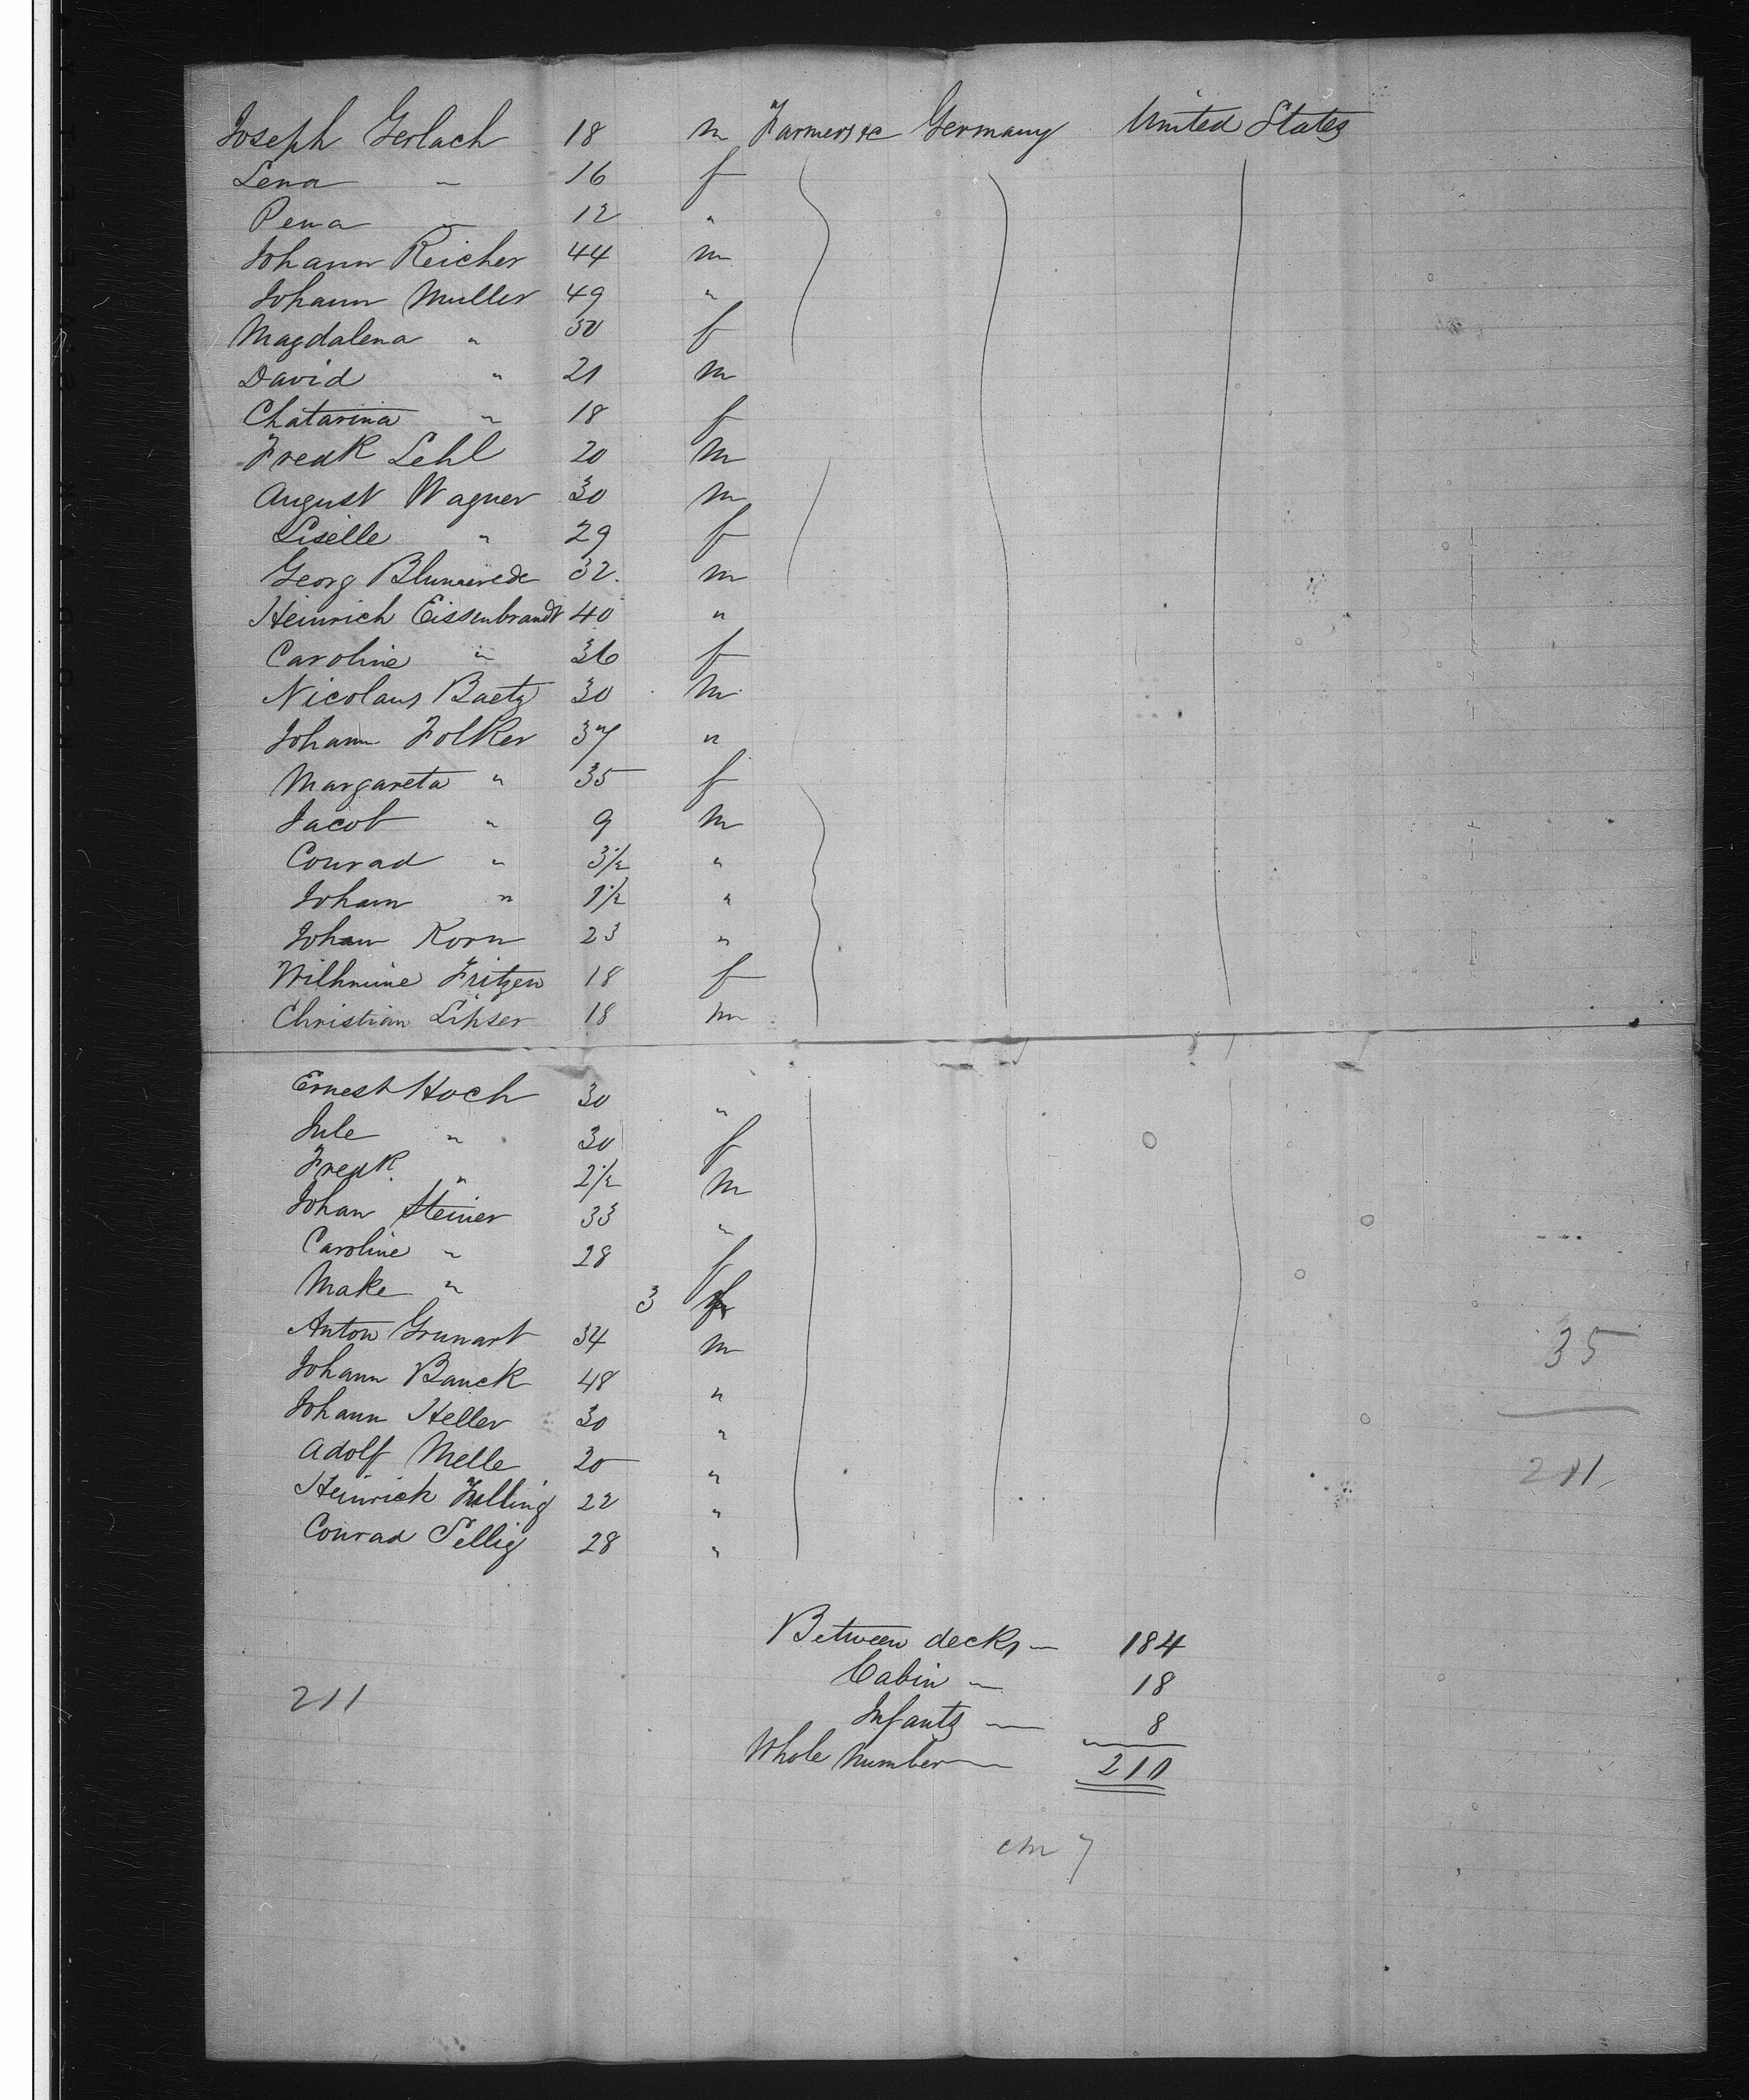 Joseph Gerlach 18 m Farmers &c Germany United States
Lena " 16 f
Pena " 12 "
Johann Reicher 44 m
Johann Muller 49 "
Magdalena " 30 f
David " 21 m
Chatarina " 18 f
Fredk Lehl 20 m
August Wagner 30 m
Liselle " 29 f
Georg 32. m
Heinrich Eissenbrandt 40 "
Caroline " 36 f
Nicolaus Baetz 30 m
Johann Folker 37 "
Margareta " 35 f
Jacob " 9 m
Conrad " 3 1/2 "
Johann " 1 1/2 "
Johann Korn 23 "
Wilhmine Fritzen 18 f
Christian Lipser 18 m
Ernest Hoch 30 "
Jule " 30 f
Fredk. " 2 1/2 m
Johan Steiner 33 "
Caroline " 28 f
Make " 3 f
Anton Grunart 34 m
35
Johann Banck 48 "
Johann Heller 30 "
Adolf Melle 20 "
211
Heinrich 22 "
Conrad Sellig 28 "
Between decks — 184
Cabin — 18
211
Infants — 8
Whole number — 210